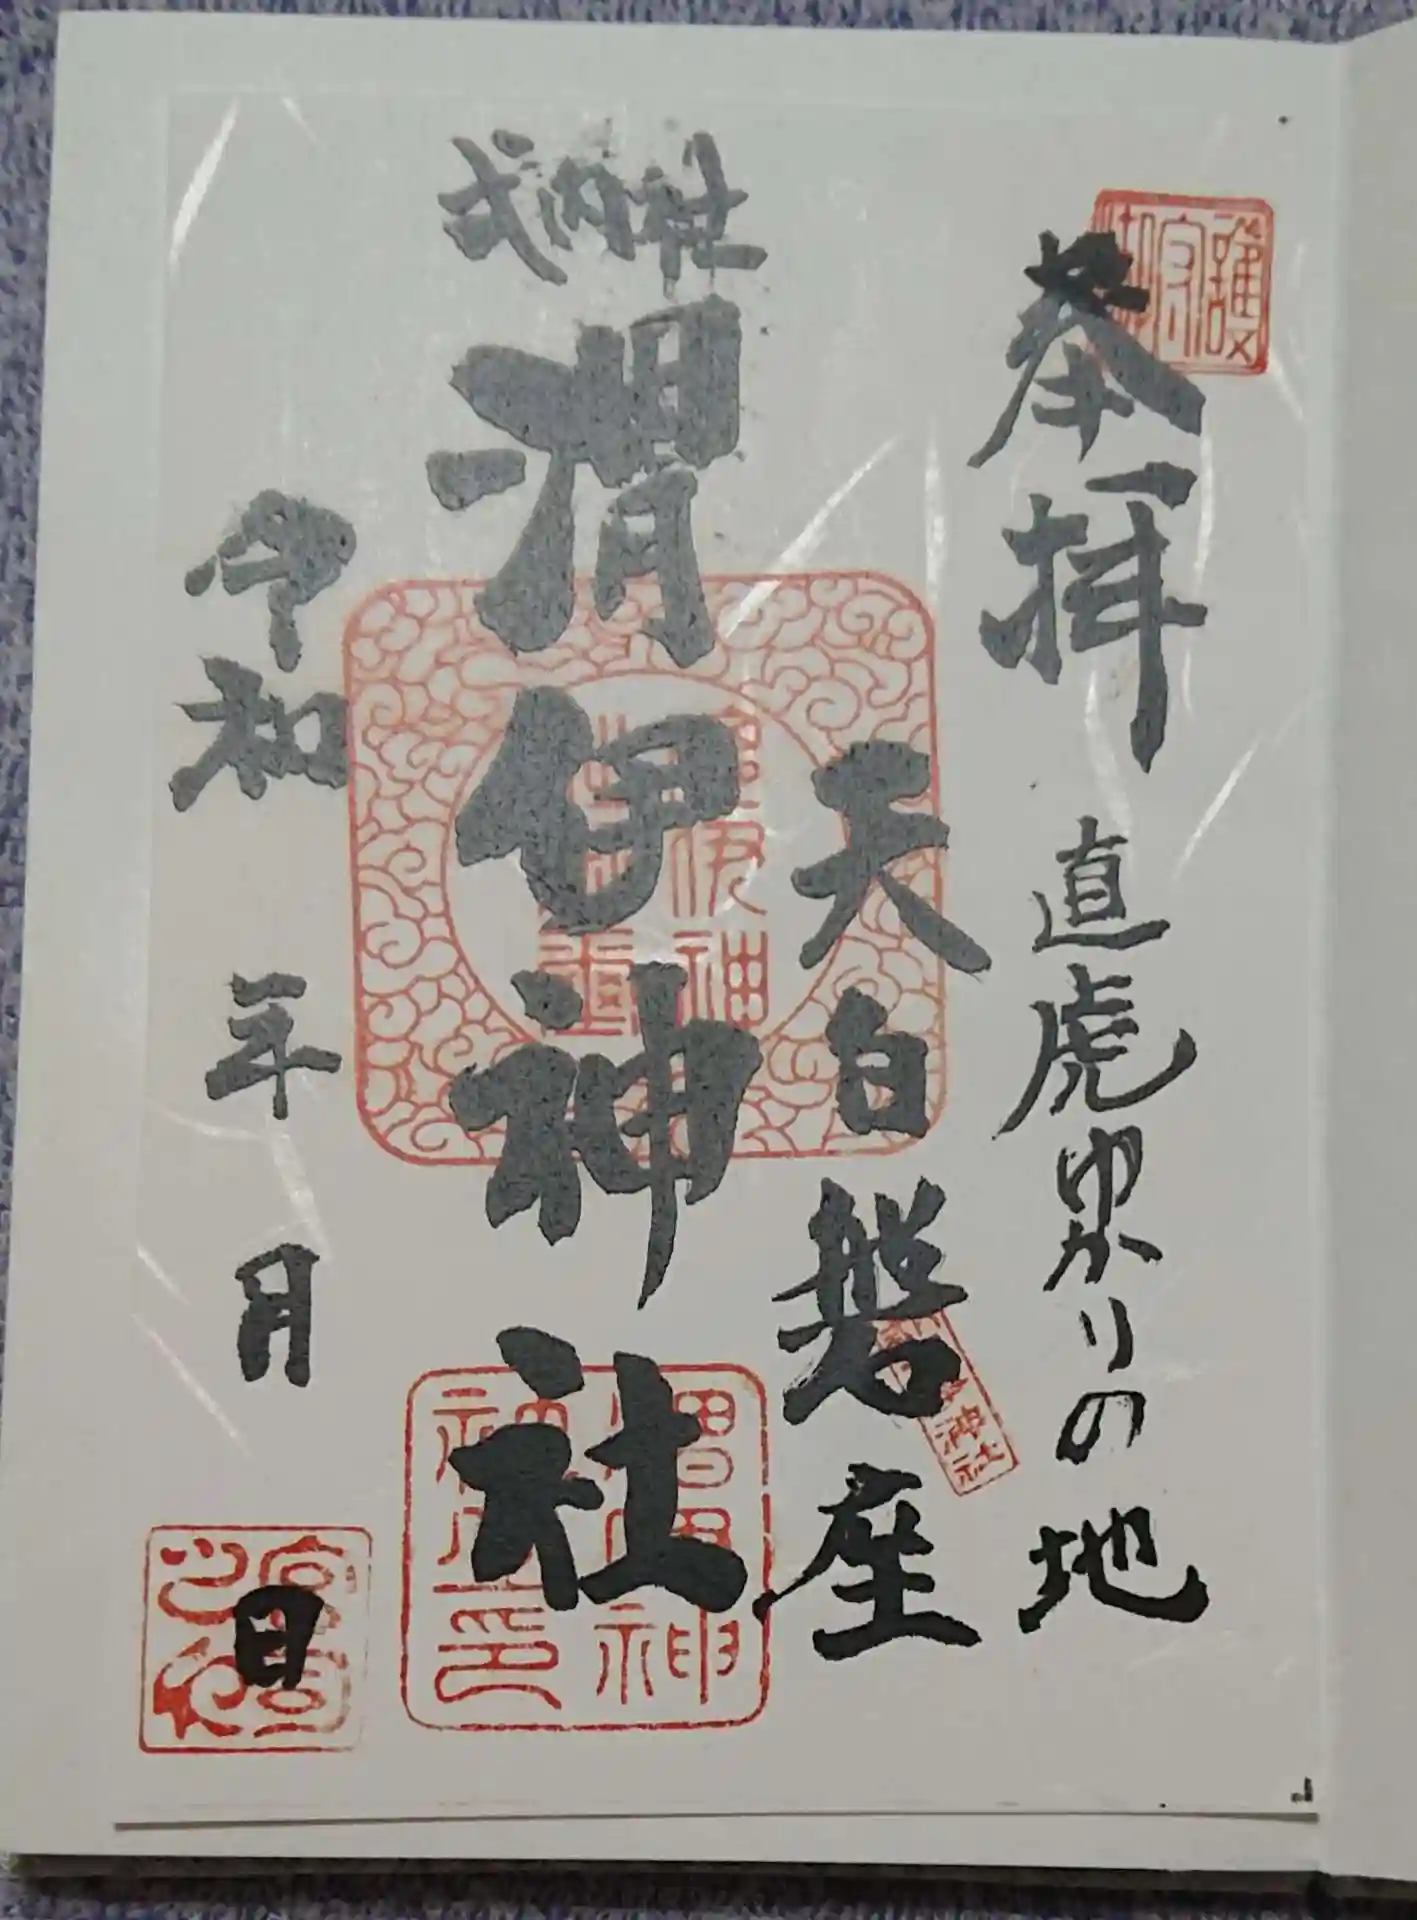 奉拝
直虎ゆかりの地
天白磐座
式内神社
渭伊神社
令和 年 月 日
神社